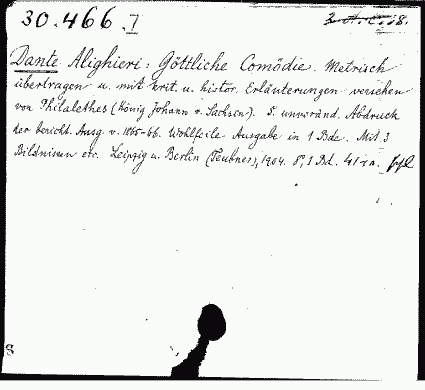 30.466.I
Dante Alighieri: Göttliche Comödie. Metrisch
übertragen u. mit krit. u. histor. Erläuterungen versehen
von Philalethes (König Johann v. Sachsen). 5. unveränd. Abdruck
der bericht. Ausg v. 1865-66. Wohlfeile Ausgabe in 1 Bde. Mit 3
Bildnissen etc. Leipzig u. Berlin (Teubner), 1904. 8°, 1 Bd.